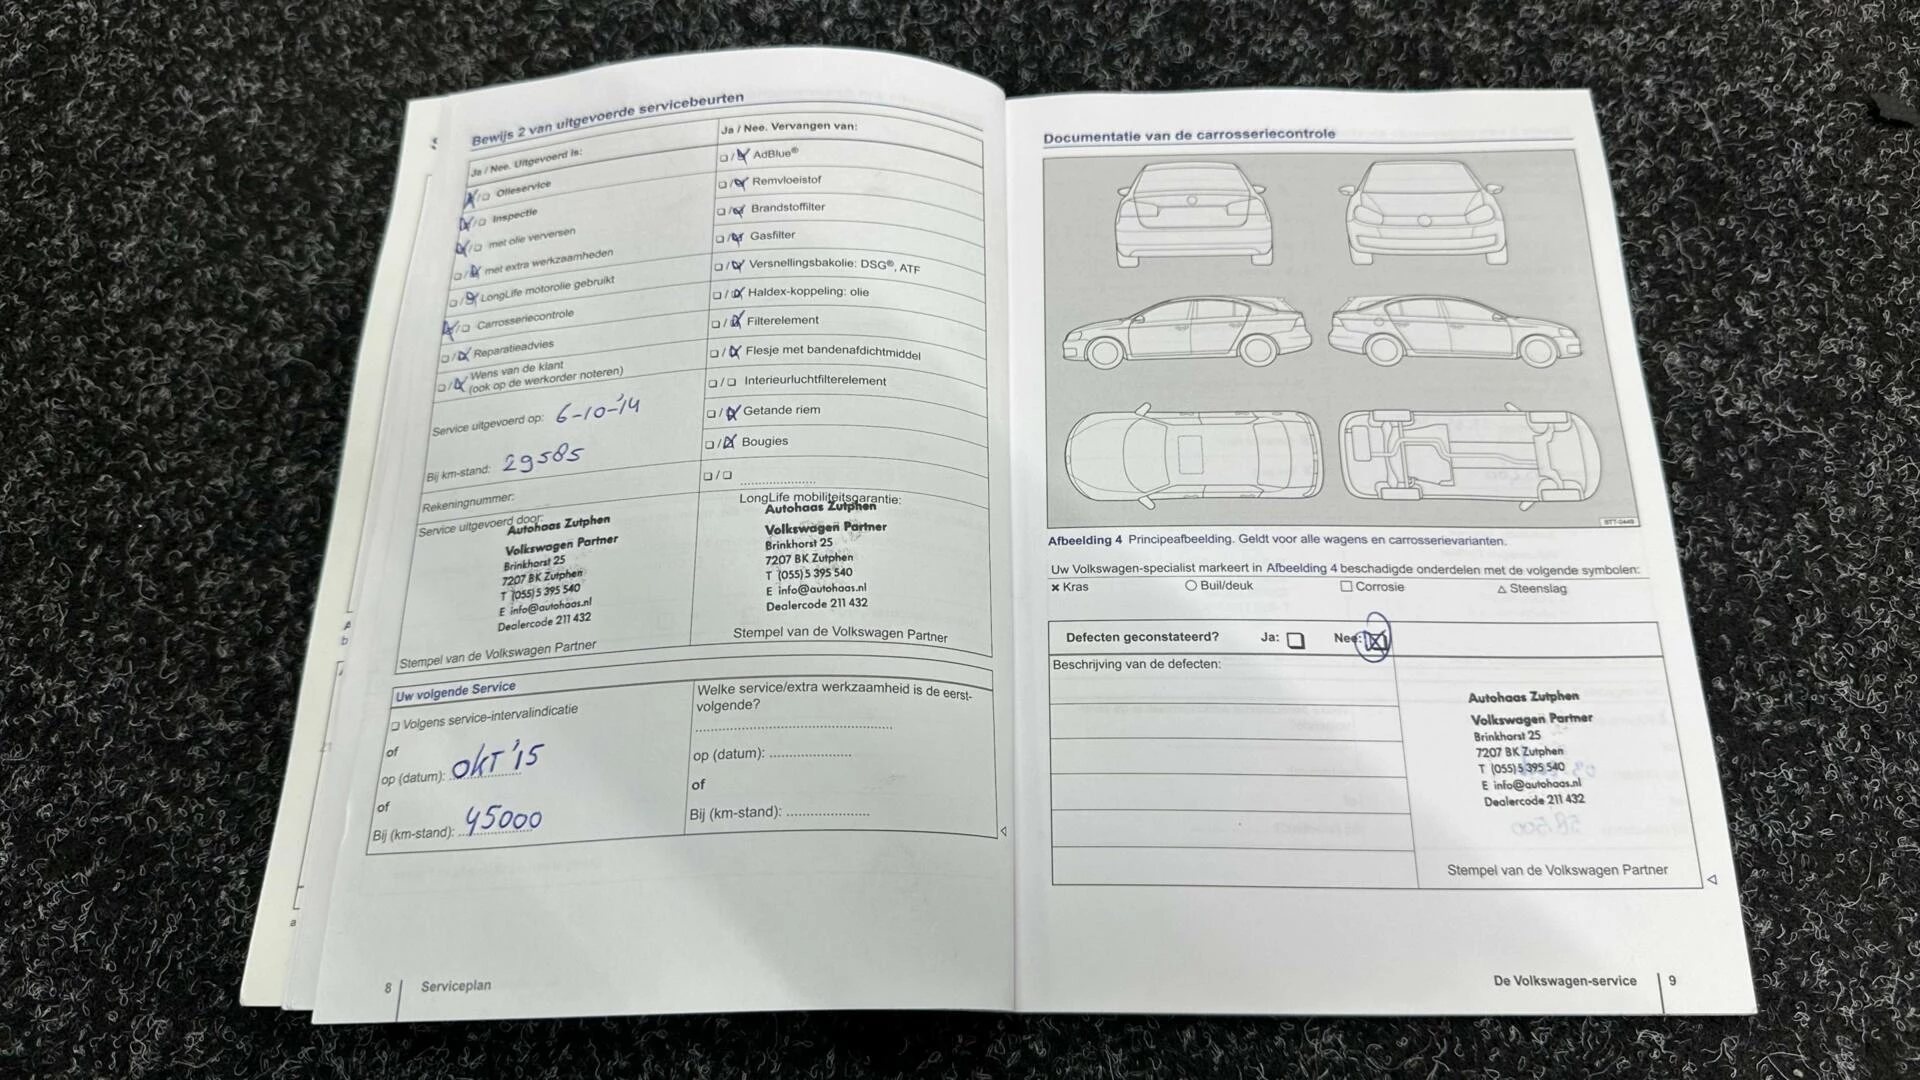 Bewijs 2 van uitgevoerde servicebeurten
Ja / Nee. Uitgevoerd is:
Olieservice
Inspectie
met olie verversen
met extra werkzaamheden
LongLife motorolie gebruikt
Carrosseriecontrole
Reparatieadvies
Wens van de klant
(ook op de werkorder noteren)
Service uitgevoerd op: 6-10-'14
Bij km-stand: 29585
Rekeningnummer:
Service uitgevoerd door:
Autohaas Zutphen
Volkswagen Partner
Brinkhorst 25
7207 BK Zutphen
T (055) 5 395 540
E info@autohaas.nl
Dealercode 211 432
Stempel van de Volkswagen Partner
Ja / Nee. Vervangen van:
AdBlue®
Remvloeistof
Brandstoffilter
Gasfilter
Versnellingsbakolie: DSG®, ATF
Haldex-koppeling: olie
Filterelement
Flesje met bandenafdichtmiddel
Interieurluchtfilterelement
Getande riem
Bougies
LongLife mobiliteitsgarantie:
Autohaas Zutphen
Volkswagen Partner
Brinkhorst 25
7207 BK Zutphen
T (055) 5 395 540
E info@autohaas.nl
Dealercode 211 432
Stempel van de Volkswagen Partner
Uw volgende Service
Volgens service-intervalindicatie
of
op (datum): OKT '15
of
Bij (km-stand): 45000
Welke service/extra werkzaamheid is de eerst-
volgende?
op (datum):
of
Bij (km-stand):
8 Serviceplan
Documentatie van de carrosseriecontrole
BTT-0449
Afbeelding 4 Principeafbeelding. Geldt voor alle wagens en carrosserievarianten.
Uw Volkswagen-specialist markeert in Afbeelding 4 beschadigde onderdelen met de volgende symbolen:
Kras Buil/deuk Corrosie Steenslag
Defecten geconstateerd? Ja: Nee:
Beschrijving van de defecten:
Autohaas Zutphen
Volkswagen Partner
Brinkhorst 25
7207 BK Zutphen
T (055) 5 395 540
E info@autohaas.nl
Dealercode 211 432
Stempel van de Volkswagen Partner
De Volkswagen-service 9